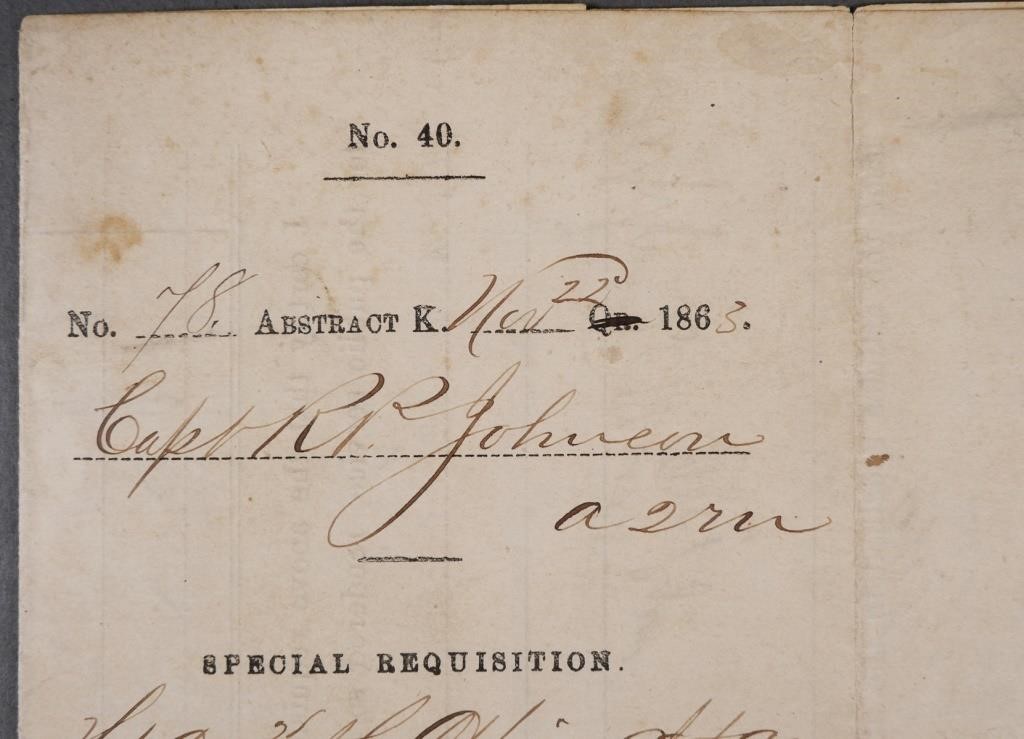 No. 40.
No. 78. ABSTRACT K. Nov 22 QR. 1863.
Capt R.R. Johnson
a 2 r m
SPECIAL REQUISITION.